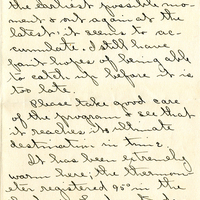 the earliest possible mo-
ment & out again at the
latest: it seems to ac-
cumulate. I still have
faint hopes of being able
to catch up before it is
too late.
Please take good care
of the program & see that
it reaches its ultimate
destination in time.
It has been extremely
warm here; the thermom-
eter registered 95° in the